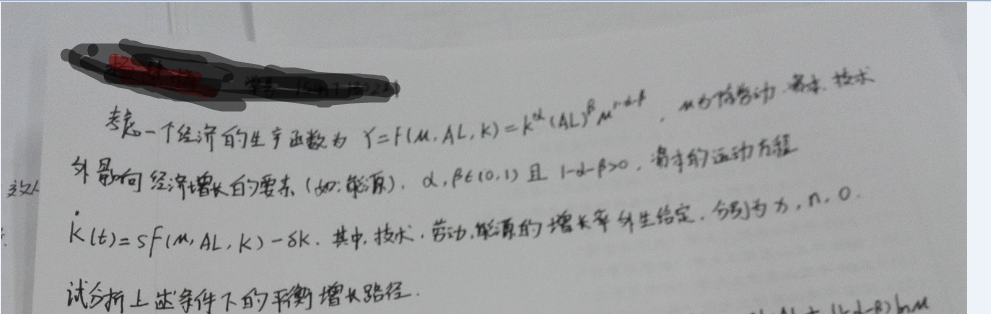 考虑一个经济的生产函数为 Y=F(M,AL,K)=K^α(AL)^β M^{1-α-β}, M为除劳动、资本、技术
外影响经济增长的要素(如:能源). α,β∈(0,1) 且 1-α-β>0, 资本的运动方程
K̇(t)=sF(M,AL,K)-δK. 其中,技术,劳动,能源的增长率外生给定,分别为 x, n, 0.
试分析上述条件下的平衡增长路径.